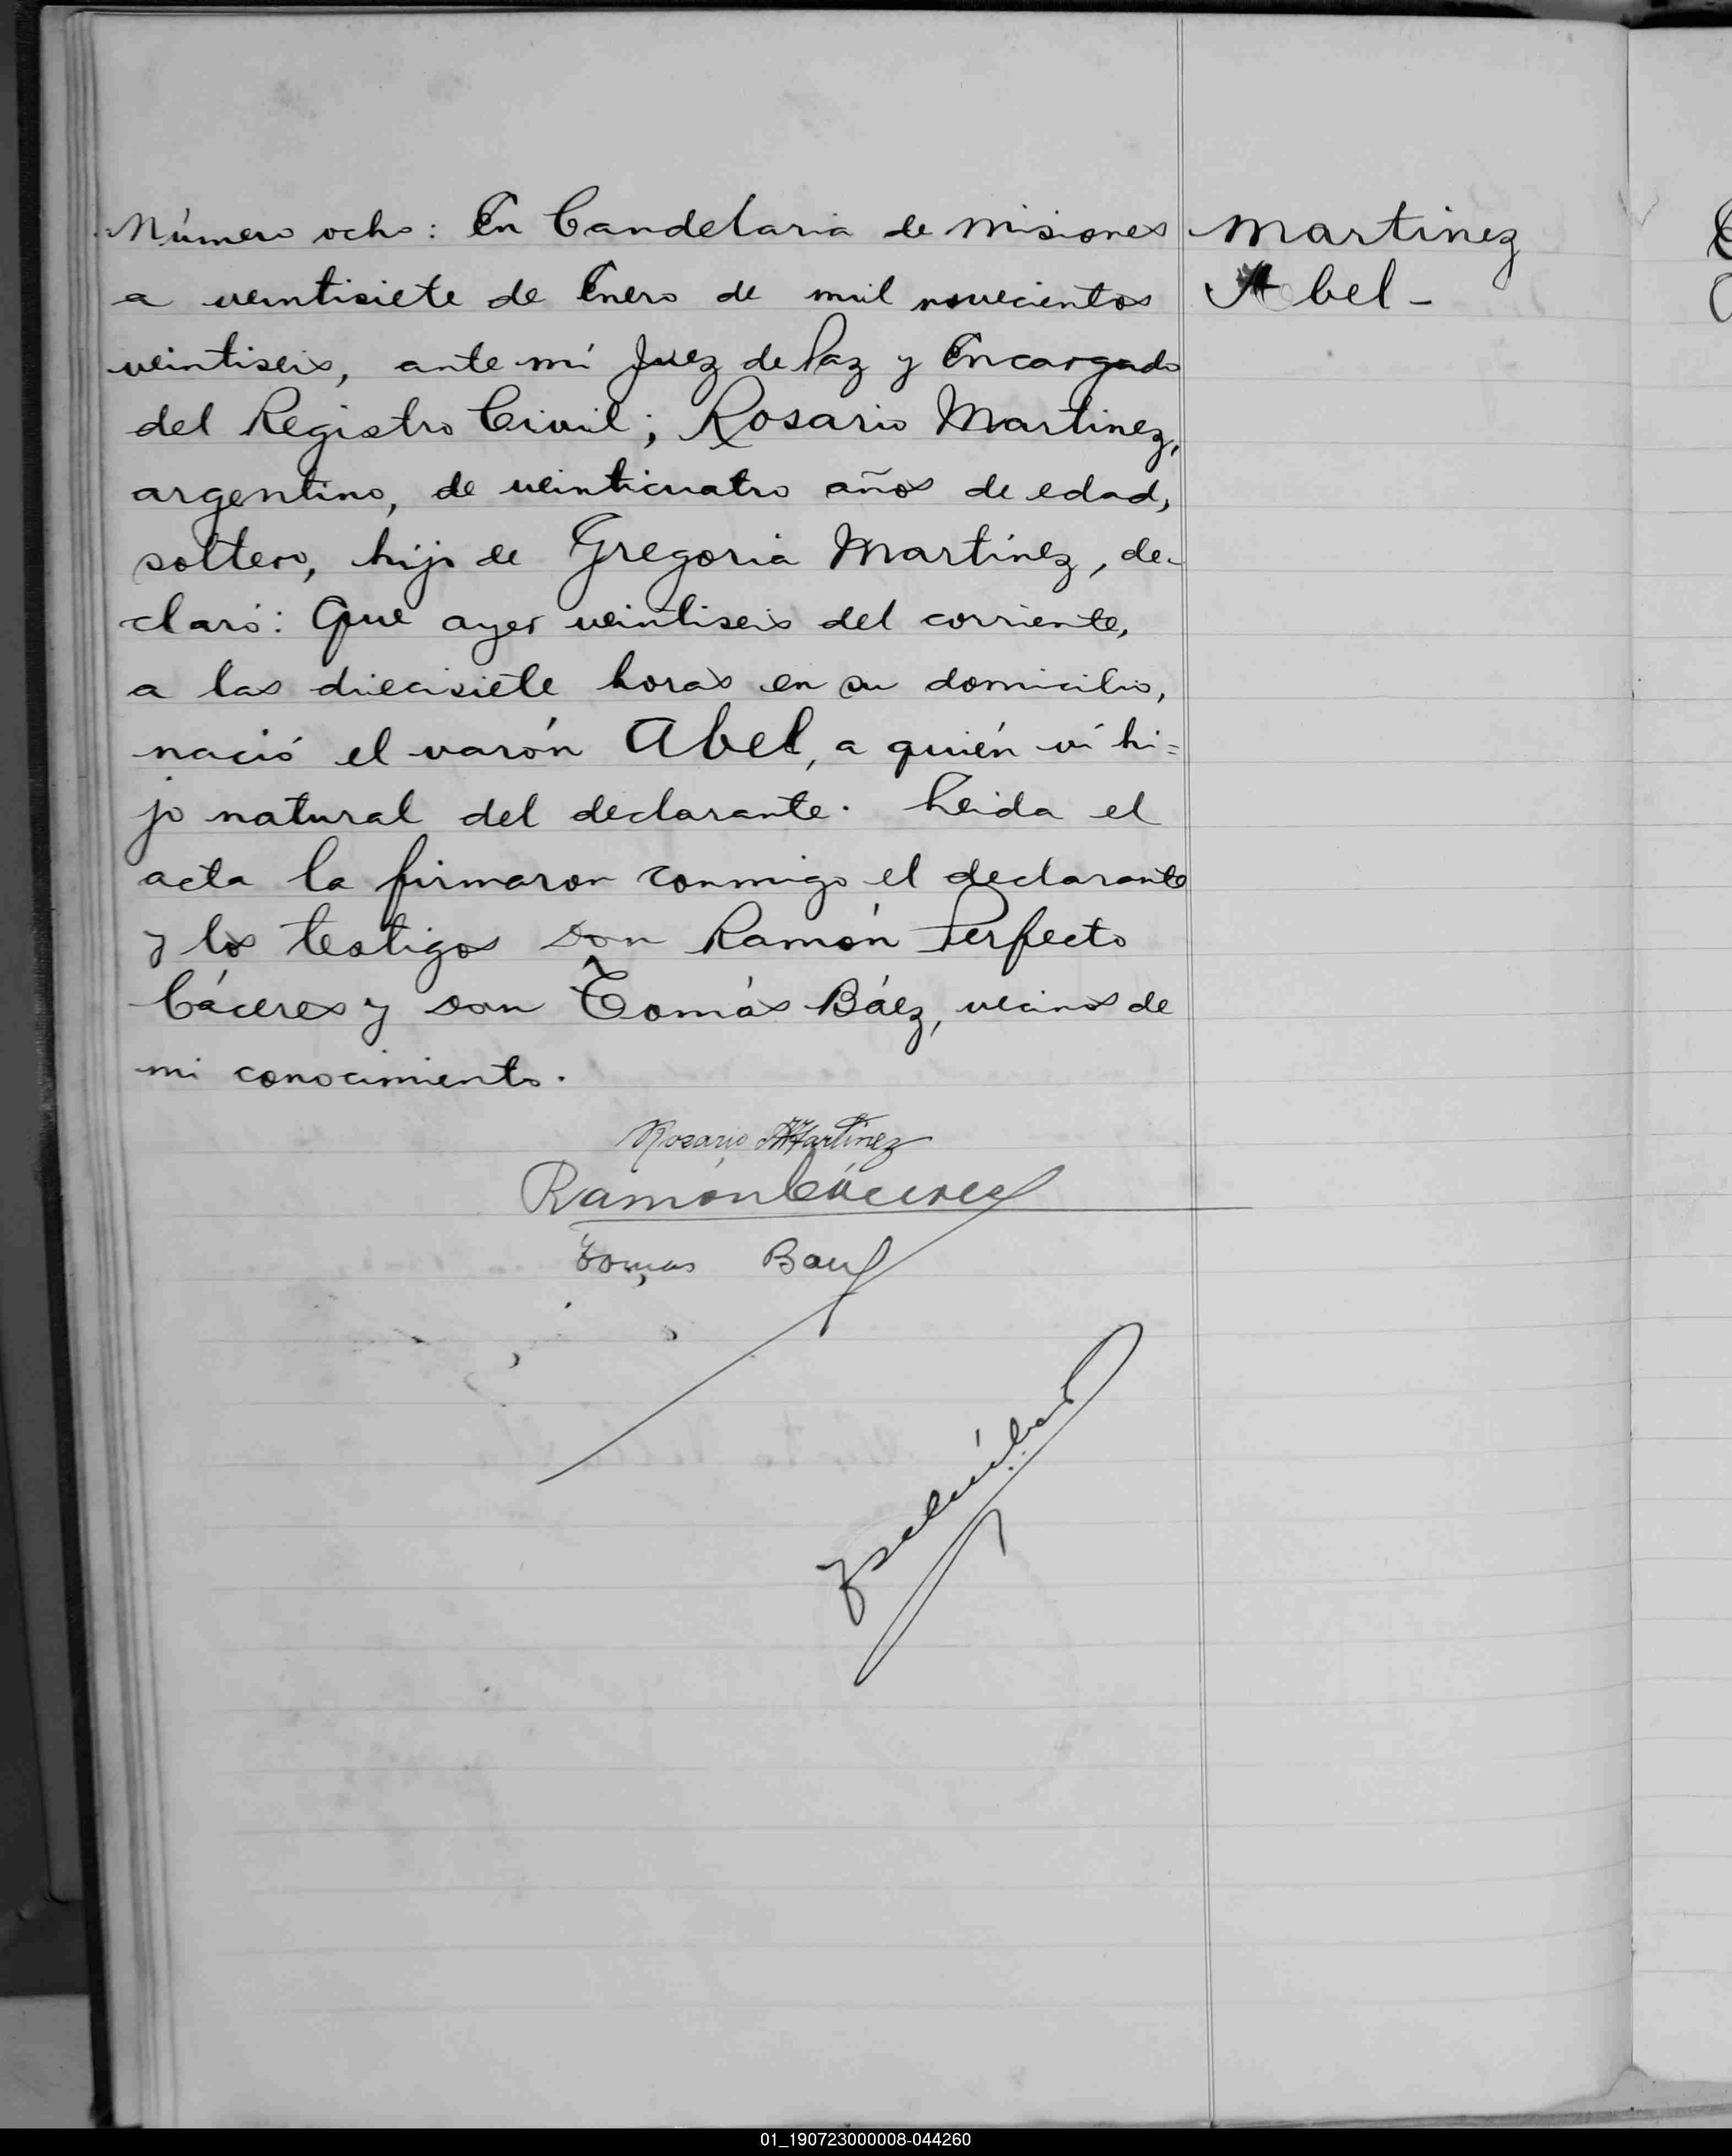 Número ocho: En Candelaria de Misiones
a veintisiete de Enero de mil novecientos
veintiseis, ante mí Juez de Paz y Encargado
del Registro Civil; Rosario Martinez,
argentino, de veinticuatro años de edad,
soltero, hijo de Gregoria Martínez, de-
claró: Que ayer veintiseis del corriente,
a las diecisiete horas en su domicilio,
nació el varón Abel, a quién ví hi=
jo natural del declarante. Leida el
acta la firmaron conmigo el declarante
y los testigos don Ramón Perfecto
Cáceres y don Tomás Báez, vecinos de
mi conocimiento.
Martinez
Abel -
Rosario Martinez
Ramón Cáceres
Tomas Baez
01_190723000008-044260